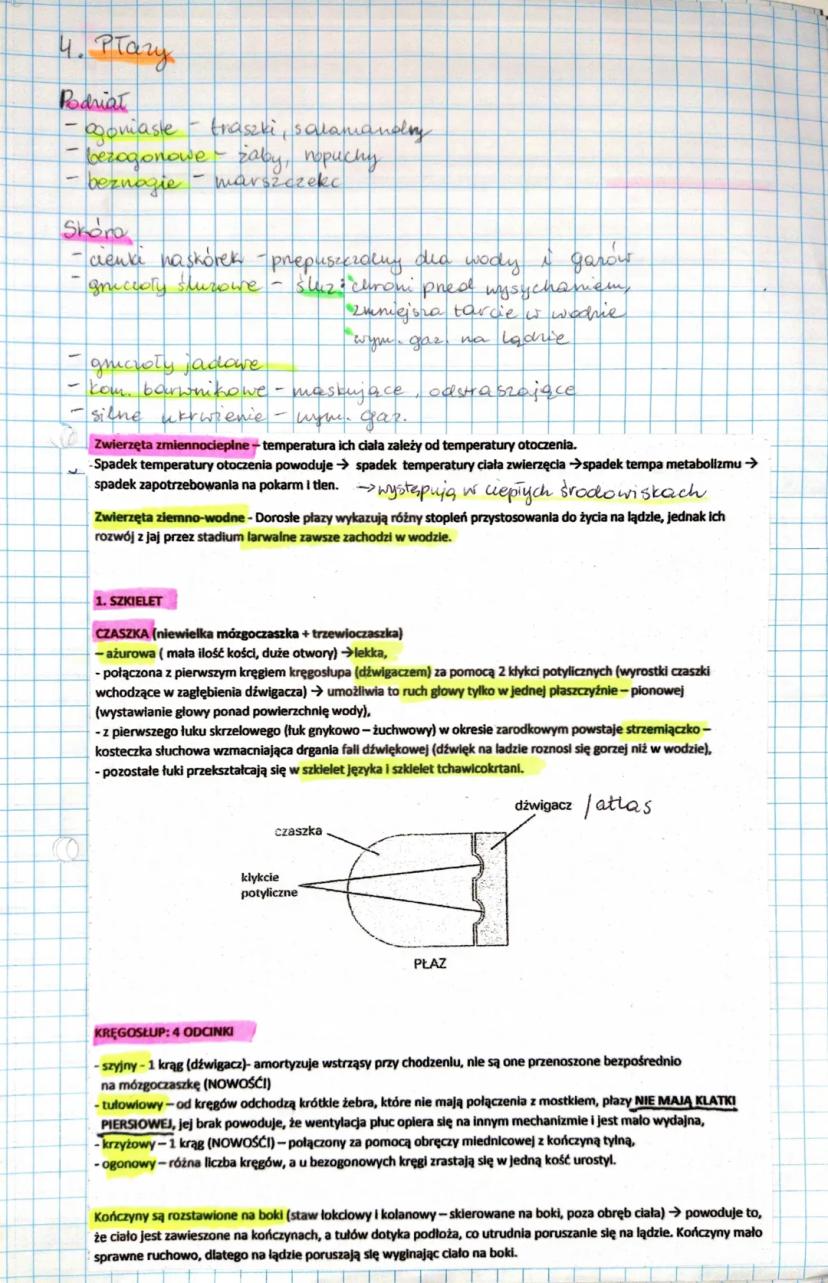 4. Płazy
Podział
- ogoniaste - traszki, salamandry
- bezogonowe - żaby, ropuchy
- beznogie - marszczelc
Skóra
- cienki naskórek - przepuszczalny dla wody i gazów
- gruczoły śluzowe - śluz: chroni przed wysychaniem,
zmniejsza tarcie w wodzie
wym. gaz. na lądzie
- gruczoły jadowe
- kom. barwnikowe - maskujące, odstraszające
- silne ukrwienie - wym. gaz.
Zwierzęta zmiennocieplne – temperatura ich ciała zależy od temperatury otoczenia.
-Spadek temperatury otoczenia powoduje → spadek temperatury ciała zwierzęcia →spadek tempa metabolizmu →
spadek zapotrzebowania na pokarm i tlen. →występują w ciepłych środowiskach
Zwierzęta ziemno-wodne - Dorosłe płazy wykazują różny stopień przystosowania do życia na lądzie, jednak ich
rozwój z jaj przez stadium larwalne zawsze zachodzi w wodzie.
1. SZKIELET
CZASZKA (niewielka mózgoczaszka + trzewioczaszka)
– ażurowa ( mała ilość kości, duże otwory) →lekka,
- połączona z pierwszym kręgiem kręgosłupa (dźwigaczem) za pomocą 2 kłykci potylicznych (wyrostki czaszki
wchodzące w zagłębienia dźwigacza) → umożliwia to ruch głowy tylko w jednej płaszczyźnie – pionowej
(wystawianie głowy ponad powierzchnię wody),
- z pierwszego łuku skrzelowego (łuk gnykowo – żuchwowy) w okresie zarodkowym powstaje strzemiączko –
kosteczka słuchowa wzmacniająca drgania fali dźwiękowej (dźwięk na ladzie roznosi się gorzej niż w wodzie),
- pozostałe łuki przekształcają się w szkielet języka i szkielet tchawicokrtani.
dźwigacz /atlas
czaszka
kłykcie
potyliczne
PŁAZ
KRĘGOSŁUP: 4 ODCINKI
- szyjny - 1 krąg (dźwigacz)- amortyzuje wstrząsy przy chodzeniu, nie są one przenoszone bezpośrednio
na mózgoczaszkę (NOWOŚĆI)
- tułowiowy – od kręgów odchodzą krótkie żebra, które nie mają połączenia z mostkiem, płazy NIE MAJĄ KLATKI
PIERSIOWEJ, jej brak powoduje, że wentylacja płuc opiera się na innym mechanizmie i jest mało wydajna,
- krzyżowy – 1 krąg (NOWOŚĆI) – połączony za pomocą obręczy miednicowej z kończyną tylną,
- ogonowy – różna liczba kręgów, a u bezogonowych kręgi zrastają się w jedną kość urostyl.
Kończyny są rozstawione na boki (staw łokciowy i kolanowy – skierowane na boki, poza obręb ciała) → powoduje to,
że ciało jest zawieszone na kończynach, a tułów dotyka podłoża, co utrudnia poruszanie się na lądzie. Kończyny mało
sprawne ruchowo, dlatego na lądzie poruszają się wyginając ciało na boki.